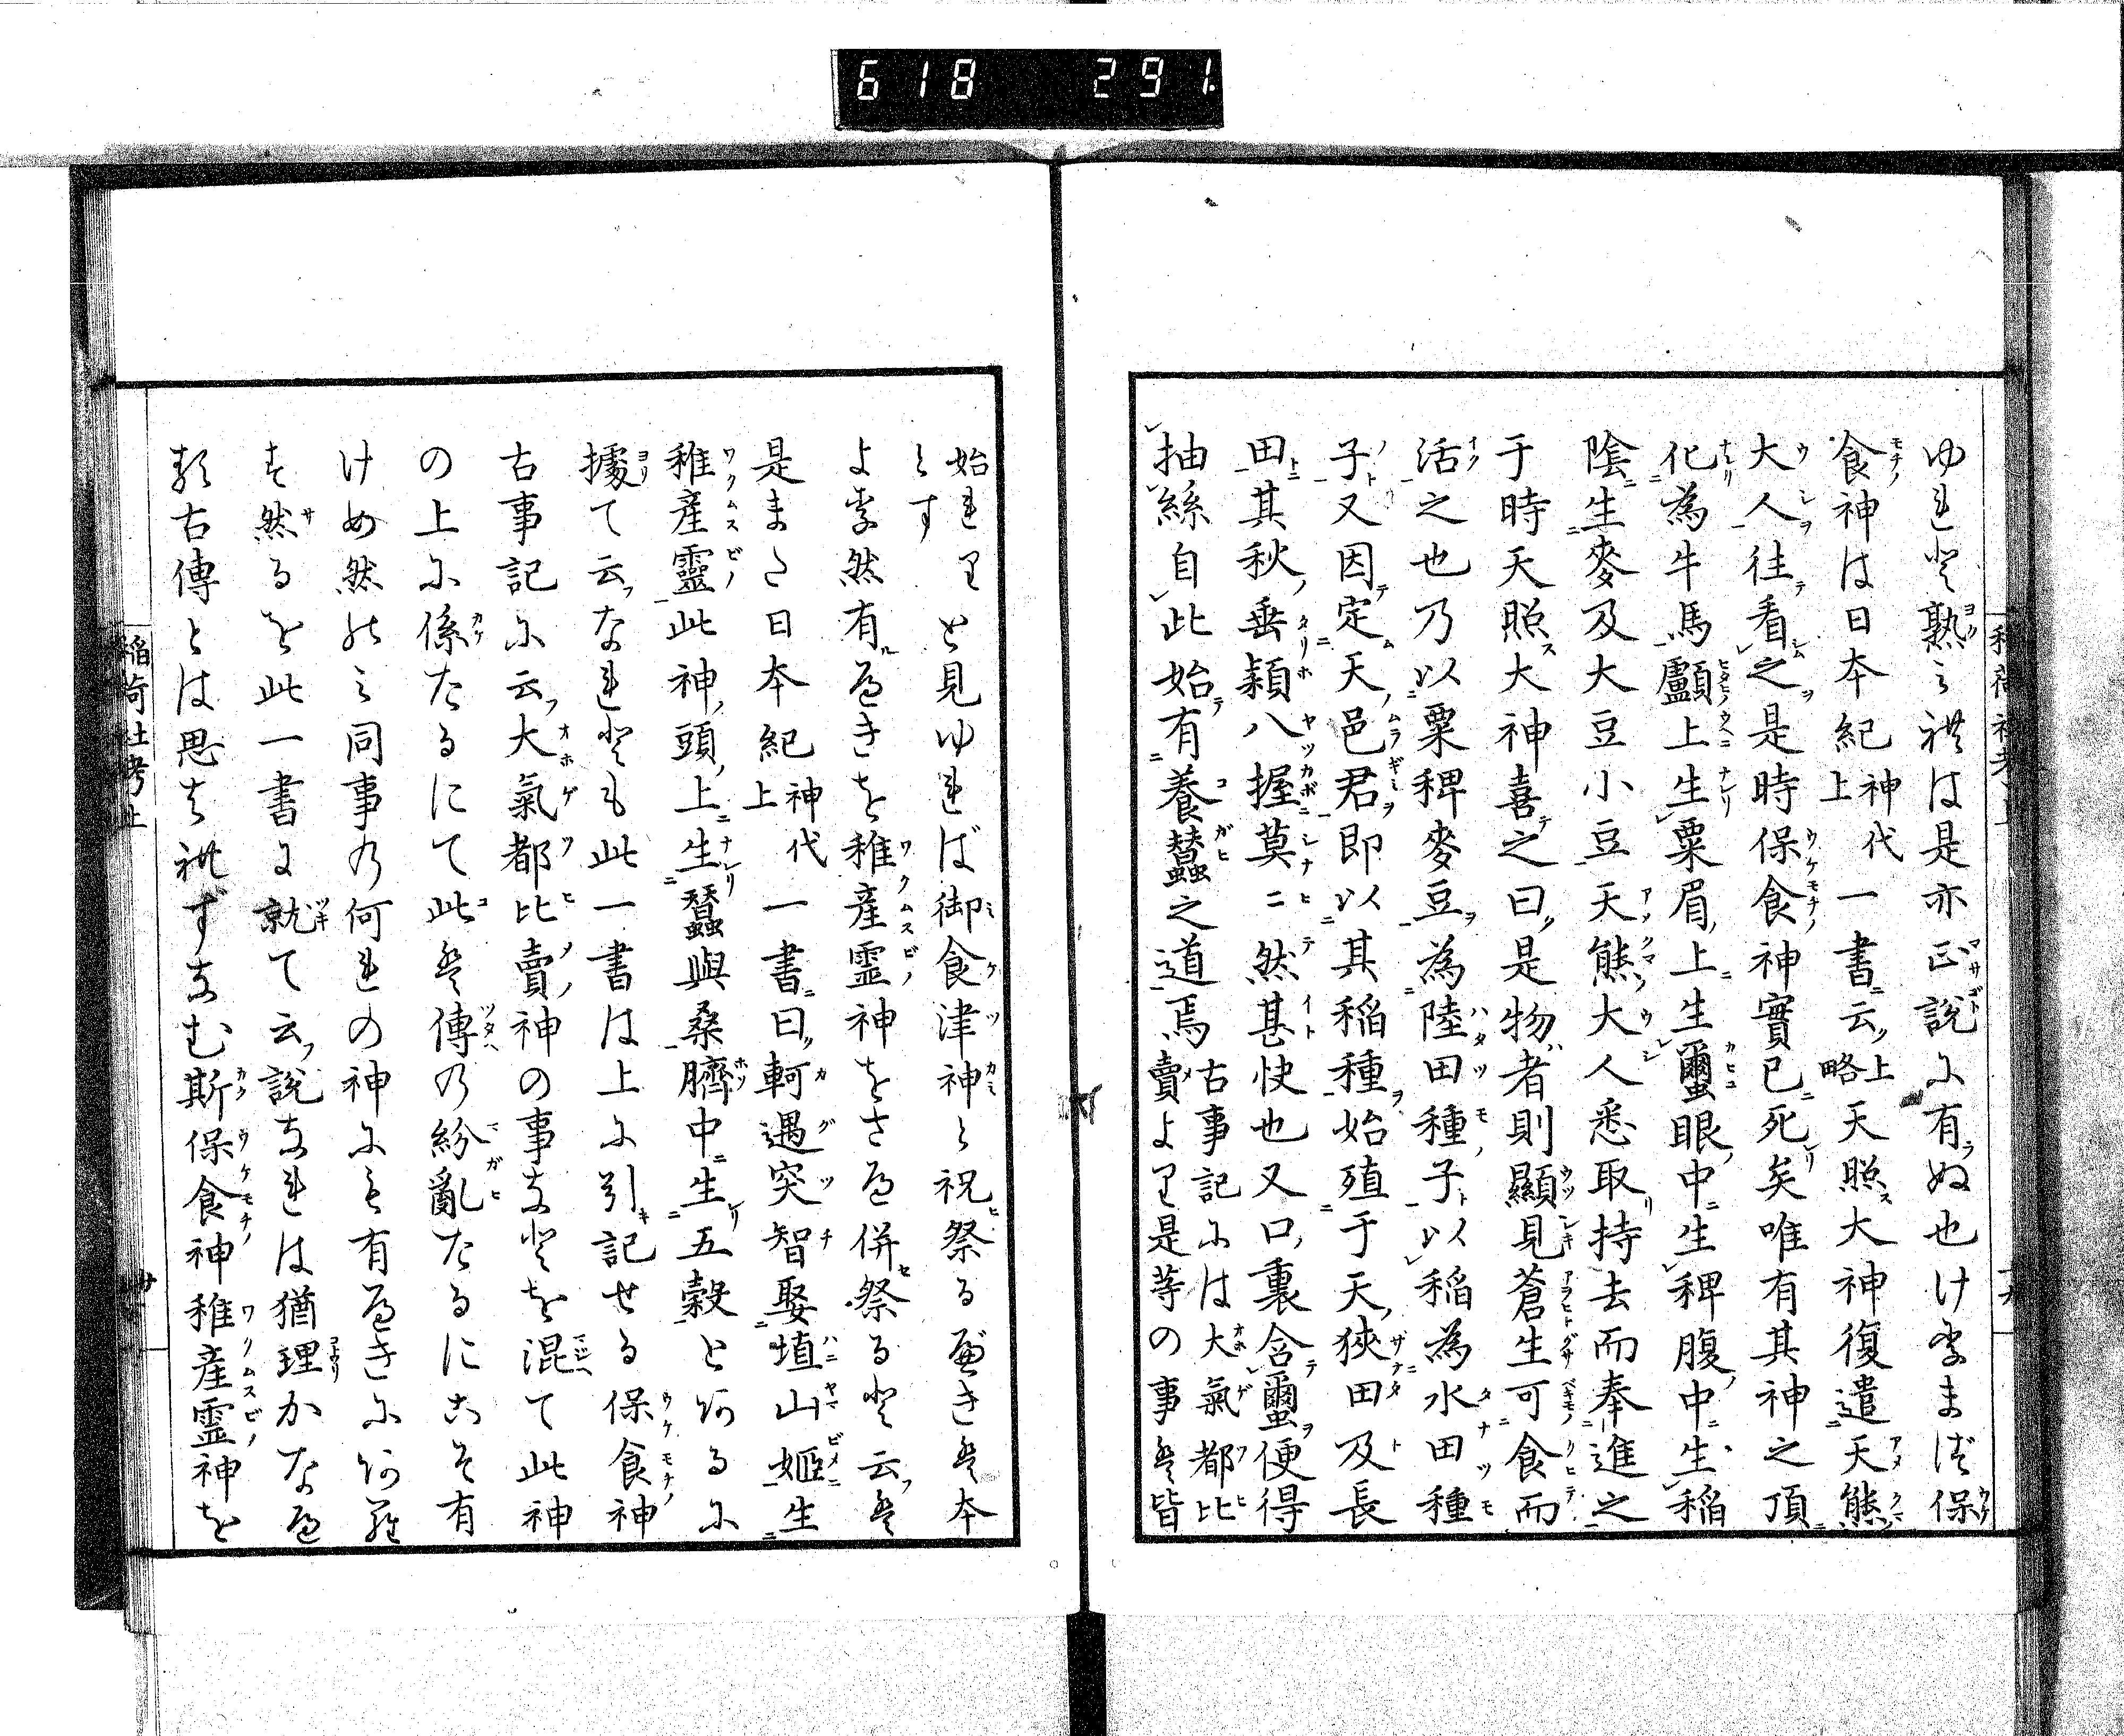 618 291.
ゆれど熟く禊は是亦正説に有ぬ也けりまづ保
食神は日本紀神代上一書云上略天照大神復遣天熊
大人往看之是時保食神實已死矣唯有其神之頂
化為牛馬顱上生粟眉上生蠒眼中生稗腹中生稲
陰生麥及大豆小豆天熊大人悉取持去而奉進之
于時天照大神喜之曰是物者則顯見蒼生可食而
活之也乃以粟稗麥豆為陸田種子以稲為水田種
子又因定天邑君即以其稲種始殖于天狹田及長
田其秋垂穎八握莫々然甚快也又口裏含蠒便得
抽絲自此始有養蠶之道焉古事記には大氣都比賣より是等の事は皆
始れりとす と見ゆれば御食津神と祝祭るべきは本
より然有べきを稚産霊神をさへ併祭ると云は
是また日本紀神代上一書曰軻遇突智娶埴山姫生
稚産靈此神頭上生蠶與桑臍中生五穀とあるに
據て云なれども此一書は上に引記せる保食神
古事記に云大氣都比賣神の事などを混て此神
の上に係たるにて此は傳の紛亂たるにこそ有
けめ然のみ同事の何れの神にも有べきにあら
ず然るを此一書に就て云説なれは猶理かなへ
る古傳とは思はれずなむ斯保食神稚産霊神を
稲荷社考上